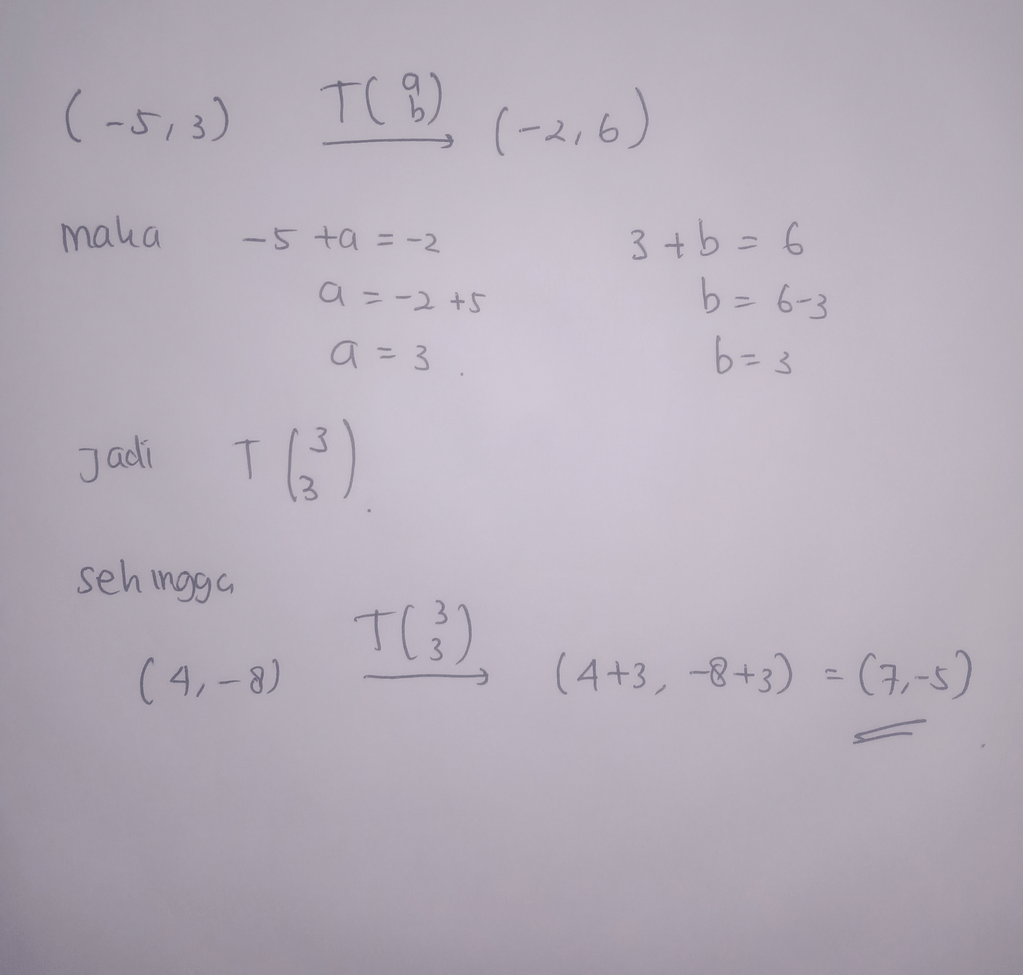 (-5,3) T(a b) → (-2,6)
maka -5 +a = -2 3 + b = 6
a = -2 +5 b = 6-3
a = 3. b = 3
Jadi T (3 3).
sehingga
(4,-8) T(3 3) → (4+3, -8+3) = (7,-5)